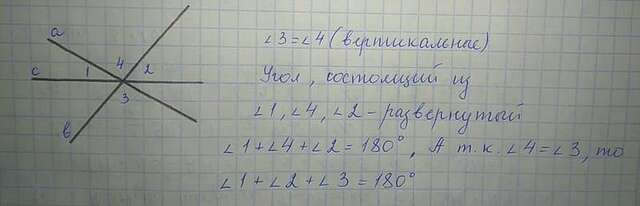 a
4
c
1
2
3
b
∠3=∠4 (вертикальные)
Угол, состоящий из
∠1, ∠4, ∠2 – развернутый
∠1+∠4+∠2=180°, А т.к. ∠4=∠3, то
∠1+∠2+∠3=180°